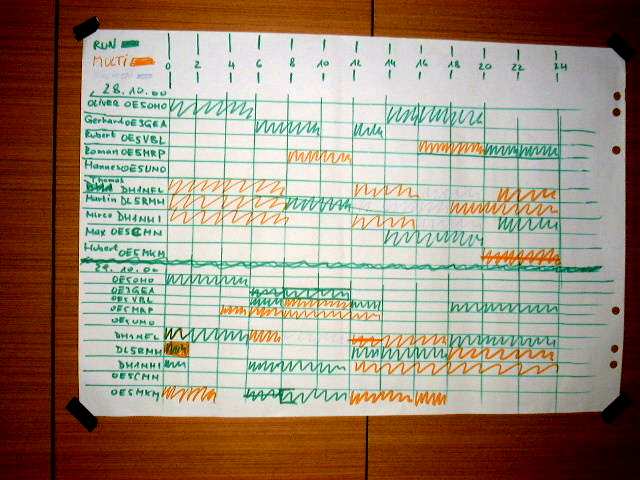 RUN
MULTI
0 2 4 6 8 10 12 14 16 18 20 22 24
28.10.00
Oliver OE5OHO
Gerhard OE3GEA
Robert OE5VBL
Roman OE5MRP
Hannes OE5UNO
Thomas DH1NEL
Martin DL5RMH
Mirco DH1NHI
Max OE5CMN
Hubert OE5MKM
29.10.00
OE5OHO
OE3GEA
OE5VBL
OE5MRP
OE5UNO
DH1NEL
DL5RMH
DH1NHI
OE5CMN
OE5MKM